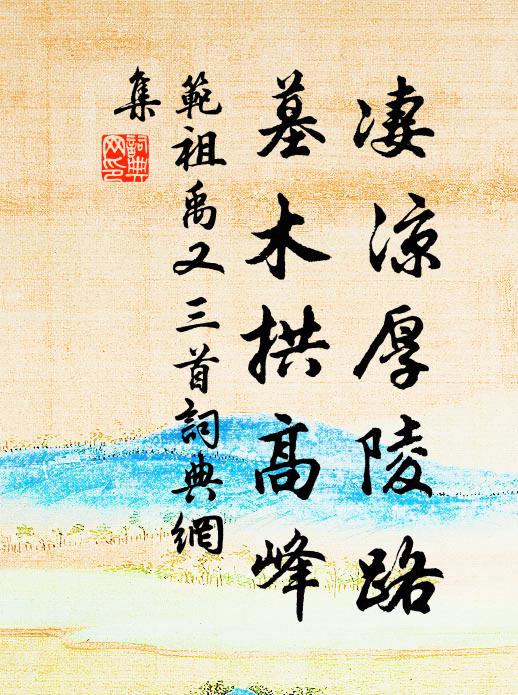 淒涼厚陵路
墓木拱高峰
範祖禹又三首詞典網
集
詞典
网印